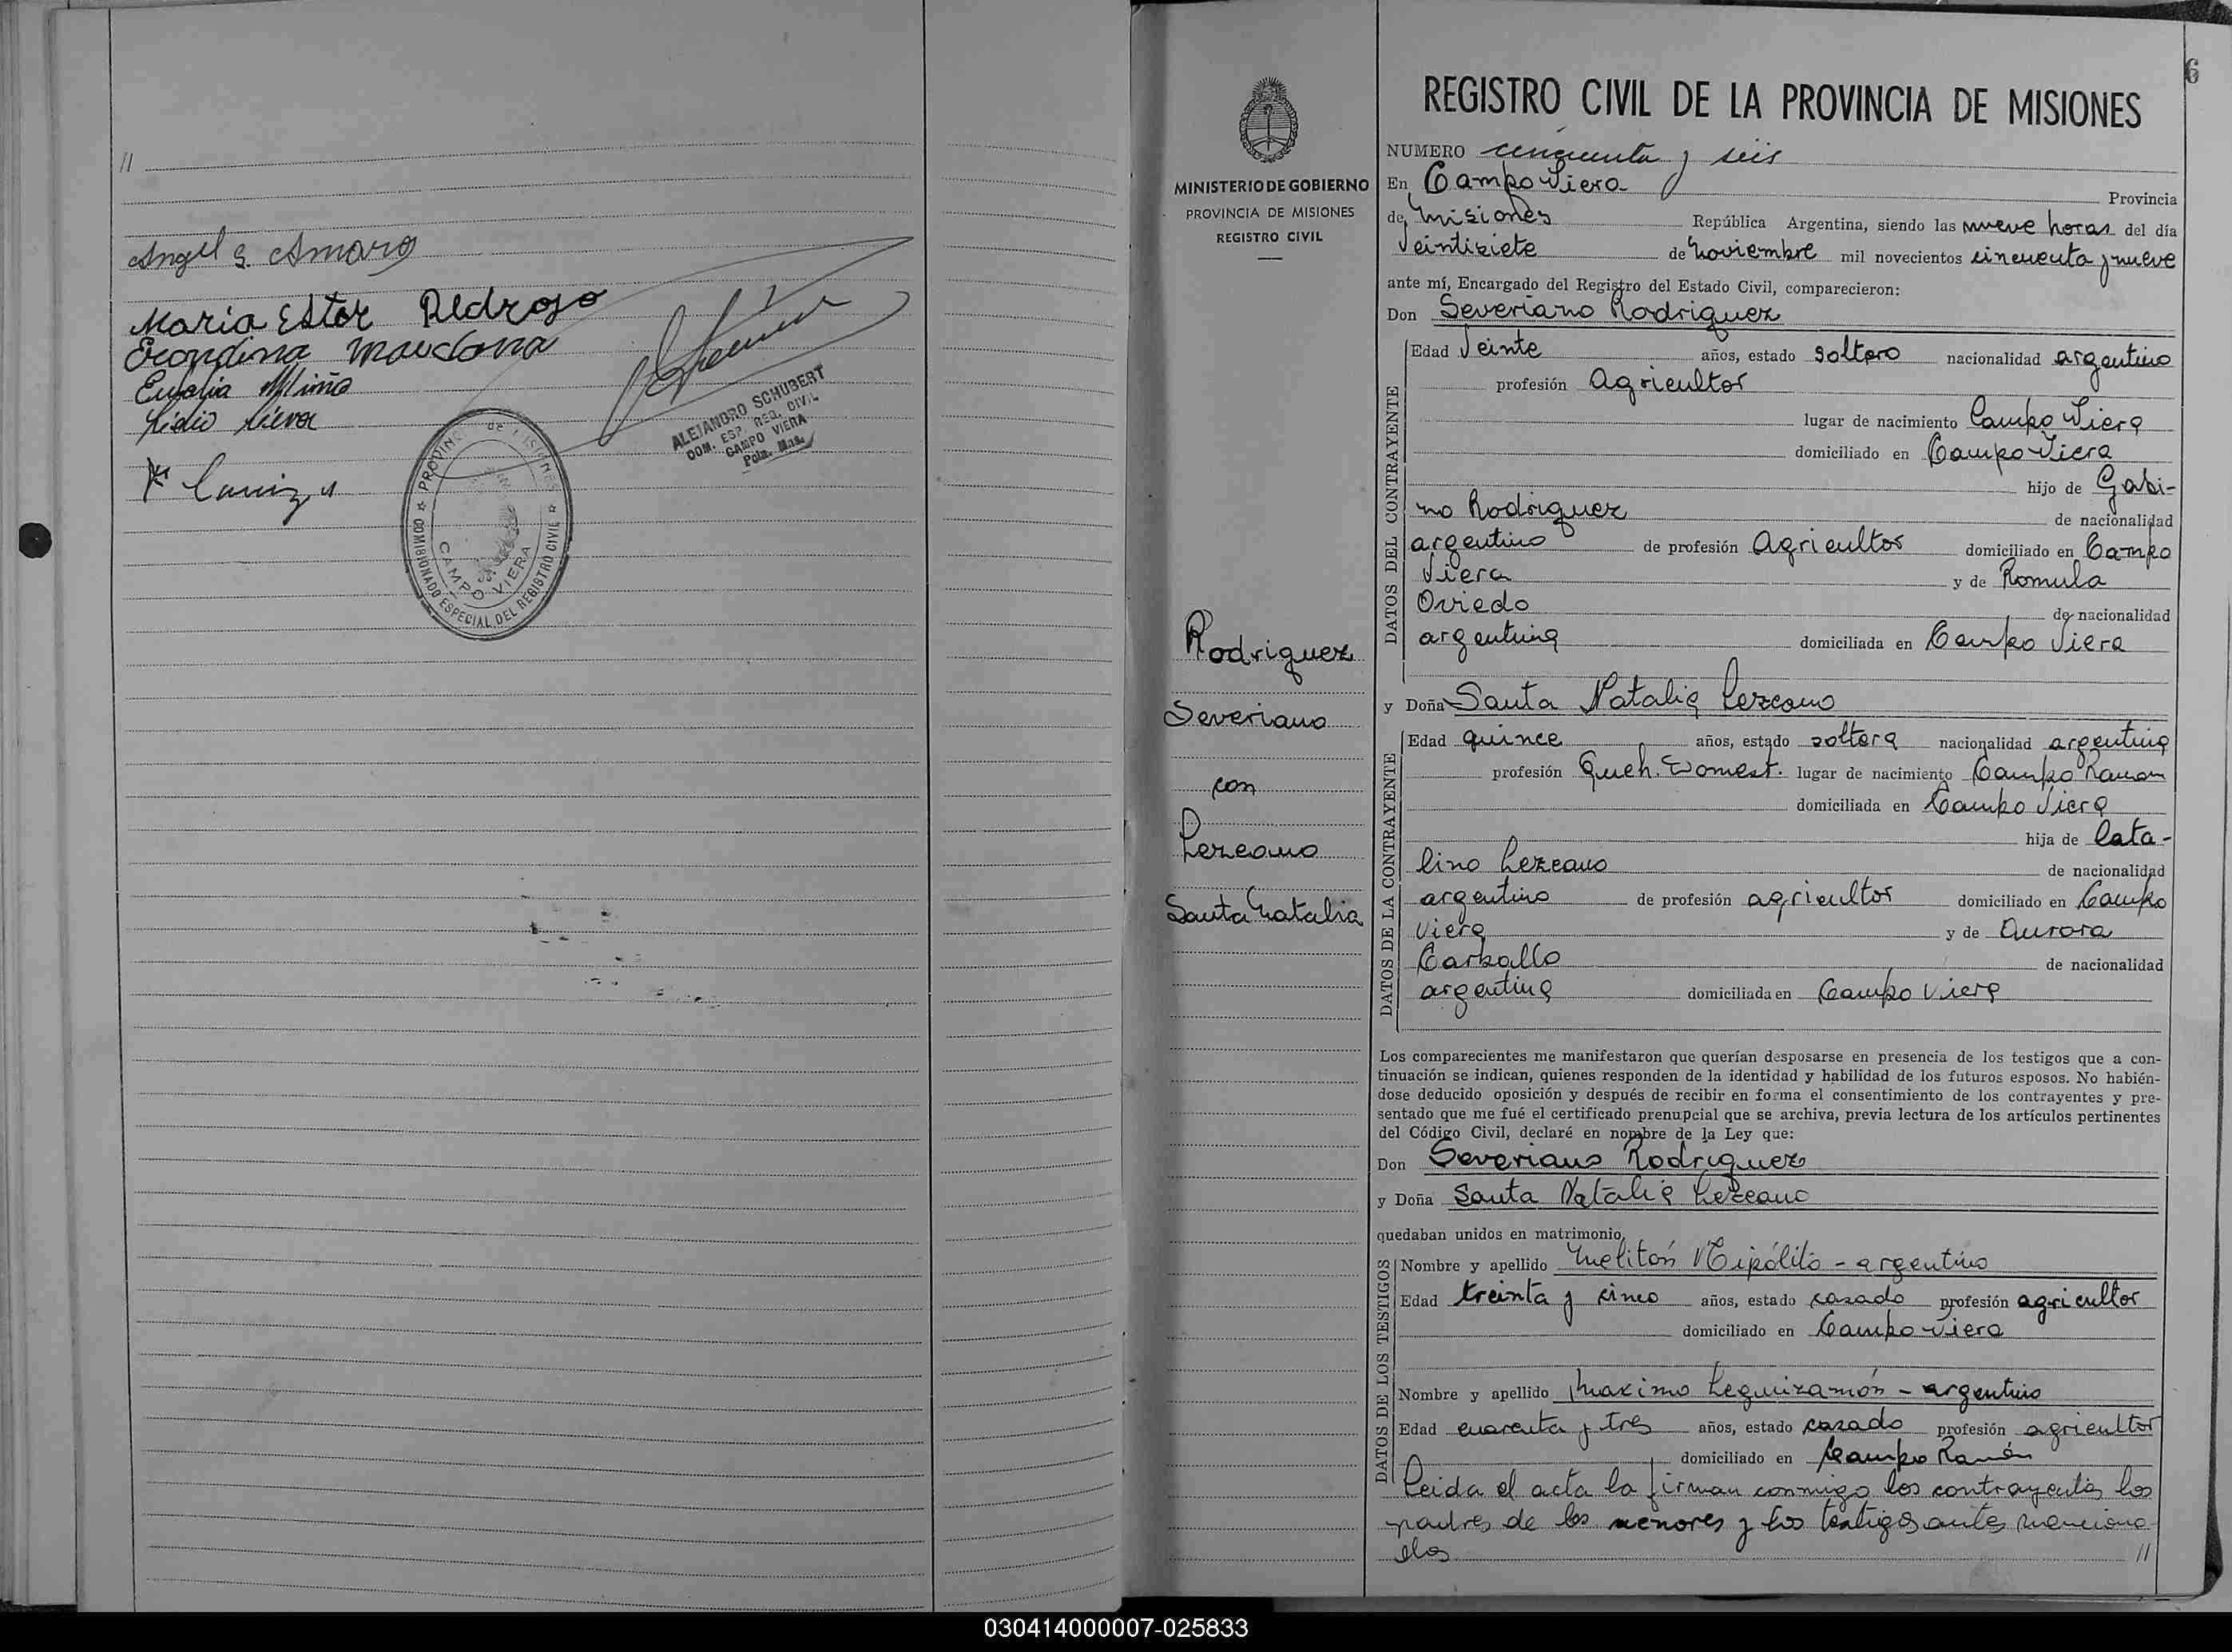 //
Angel S. Amaro
Maria Ester Pedrozo
Mardona
Eulalia Miño
Lidio
ALEJANDRO SCHUBERT
COM. ESP. REG. CIVIL
CAMPO VIERA
Pcia. Mnes.
PROVINCIA de MISIONES
COMISIONADO ESPECIAL DEL REGISTRO CIVIL
CAMPO VIERA
6
MINISTERIO DE GOBIERNO
PROVINCIA DE MISIONES
REGISTRO CIVIL
Rodriguez
Severiano
con
Lezcano
Santa Natalia
REGISTRO CIVIL DE LA PROVINCIA DE MISIONES
NUMERO cincuenta y seis
En Campo Viera Provincia
de Misiones República Argentina, siendo las nueve horas del día
Veintisiete de Noviembre mil novecientos cincuenta y nueve
ante mí, Encargado del Registro del Estado Civil, comparecieron:
Don Severiano Rodriguez
DATOS DEL CONTRAYENTE
Edad Veinte años, estado soltero nacionalidad argentino
profesión Agricultor
lugar de nacimiento Campo Viera
domiciliado en Campo Viera
hijo de Gabi-
no Rodriguez de nacionalidad
argentino de profesión Agricultor domiciliado en Campo
Viera y de Romula
Oviedo de nacionalidad
argentina domiciliada en Campo Viera
y Doña Santa Natalia Lezcano
DATOS DE LA CONTRAYENTE
Edad quince años, estado soltera nacionalidad argentina
profesión Queh. Domest. lugar de nacimiento Campo Ramon
domiciliada en Campo Viera
hija de Cata-
lino Lezcano de nacionalidad
argentino de profesión agricultor domiciliado en Campo
Viera y de Aurora
Carballo de nacionalidad
argentina domiciliada en Campo Viera
Los comparecientes me manifestaron que querían desposarse en presencia de los testigos que a con-
tinuación se indican, quienes responden de la identidad y habilidad de los futuros esposos. No habién-
dose deducido oposición y después de recibir en forma el consentimiento de los contrayentes y pre-
sentado que me fué el certificado prenupcial que se archiva, previa lectura de los artículos pertinentes
del Código Civil, declaré en nombre de la Ley que:
Don Severiano Rodriguez
y Doña Santa Natalia Lezcano
quedaban unidos en matrimonio.
DATOS DE LOS TESTIGOS
Nombre y apellido Melitón Hipólito - argentino
Edad treinta y cinco años, estado casado profesión agricultor
domiciliado en Campo Viera
Nombre y apellido Maximo Leguizamón - argentino
Edad cuarenta y tres años, estado casado profesión agricultor
domiciliado en Campo Ramón
Leida el acta la firman conmigo los contrayentes los
padres de los menores y los testigos antes menciona
dos //
030414000007-025833